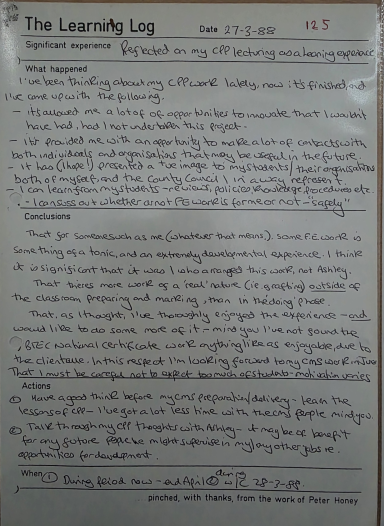 The Learning Log Date 27-3-88 125
Significant experience Reflected on my CPP lecturing as a learning experience
What happened
I've been thinking about my CPP work lately, now it's finished, and
I've come up with the following.
- it's allowed me a lot of opportunities to innovate that I wouldn't
have had, had I not undertaken this project.
- It's provided me with an opportunity to make a lot of contacts with
both individuals and organisations that may be useful in the future.
- It has (I hope!) presented a +ve image to my students/their organisations
both of myself, and the County Council I in a way represent.
- I can learn from my students - reviews, policies, knowledge, procedures etc.
- I can suss out whether or not FE work is for me or not - "safely"
Conclusions
That for someone such as me (whatever that means,). some FE work is
something of a tonic, and an extremely developmental experience. I think
it is significant that it was I who arranged this work, not Ashley.
That there's more work of a 'real' nature (ie. grafting) outside of
the classroom preparing and marking, than in the 'doing' phase.
That, as I thought, I've thoroughly enjoyed the experience - and
would like to do some more of it - mind you I've not found the
BTEC National certificate work anything like as enjoyable, due to
the clientele. In this respect I'm looking forward to my CMS work in June
That I must be careful not to expect too much of students - motivation varies
Actions
① Have a good think before my CMS preparation/delivery - learn the
lessons of CPP - I've got a lot less time with the CMS people mind you.
② Talk through my CPP thoughts with Ashley - it may be of benefit
for any future people he might supervise in my/any other jobs re.
opportunities for development.
When ① During period now - end April ② during w/c 28-3-88.
pinched, with thanks, from the work of Peter Honey